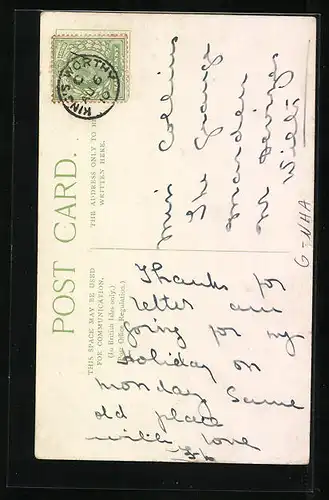 POST CARD.
THE ADDRESS ONLY TO BE
WRITTEN HERE.
THIS SPACE MAY BE USED
FOR COMMUNICATION.
(In British Isles only.)
Post Office Regulation.)
KING'S WORTHY
AU 6
Miss Collins
The Grange
Marden
Nr Devizes
Wilts
G-NHA
Thanks for
letter am
going for my
Holiday on
monday. Same
old place
with love